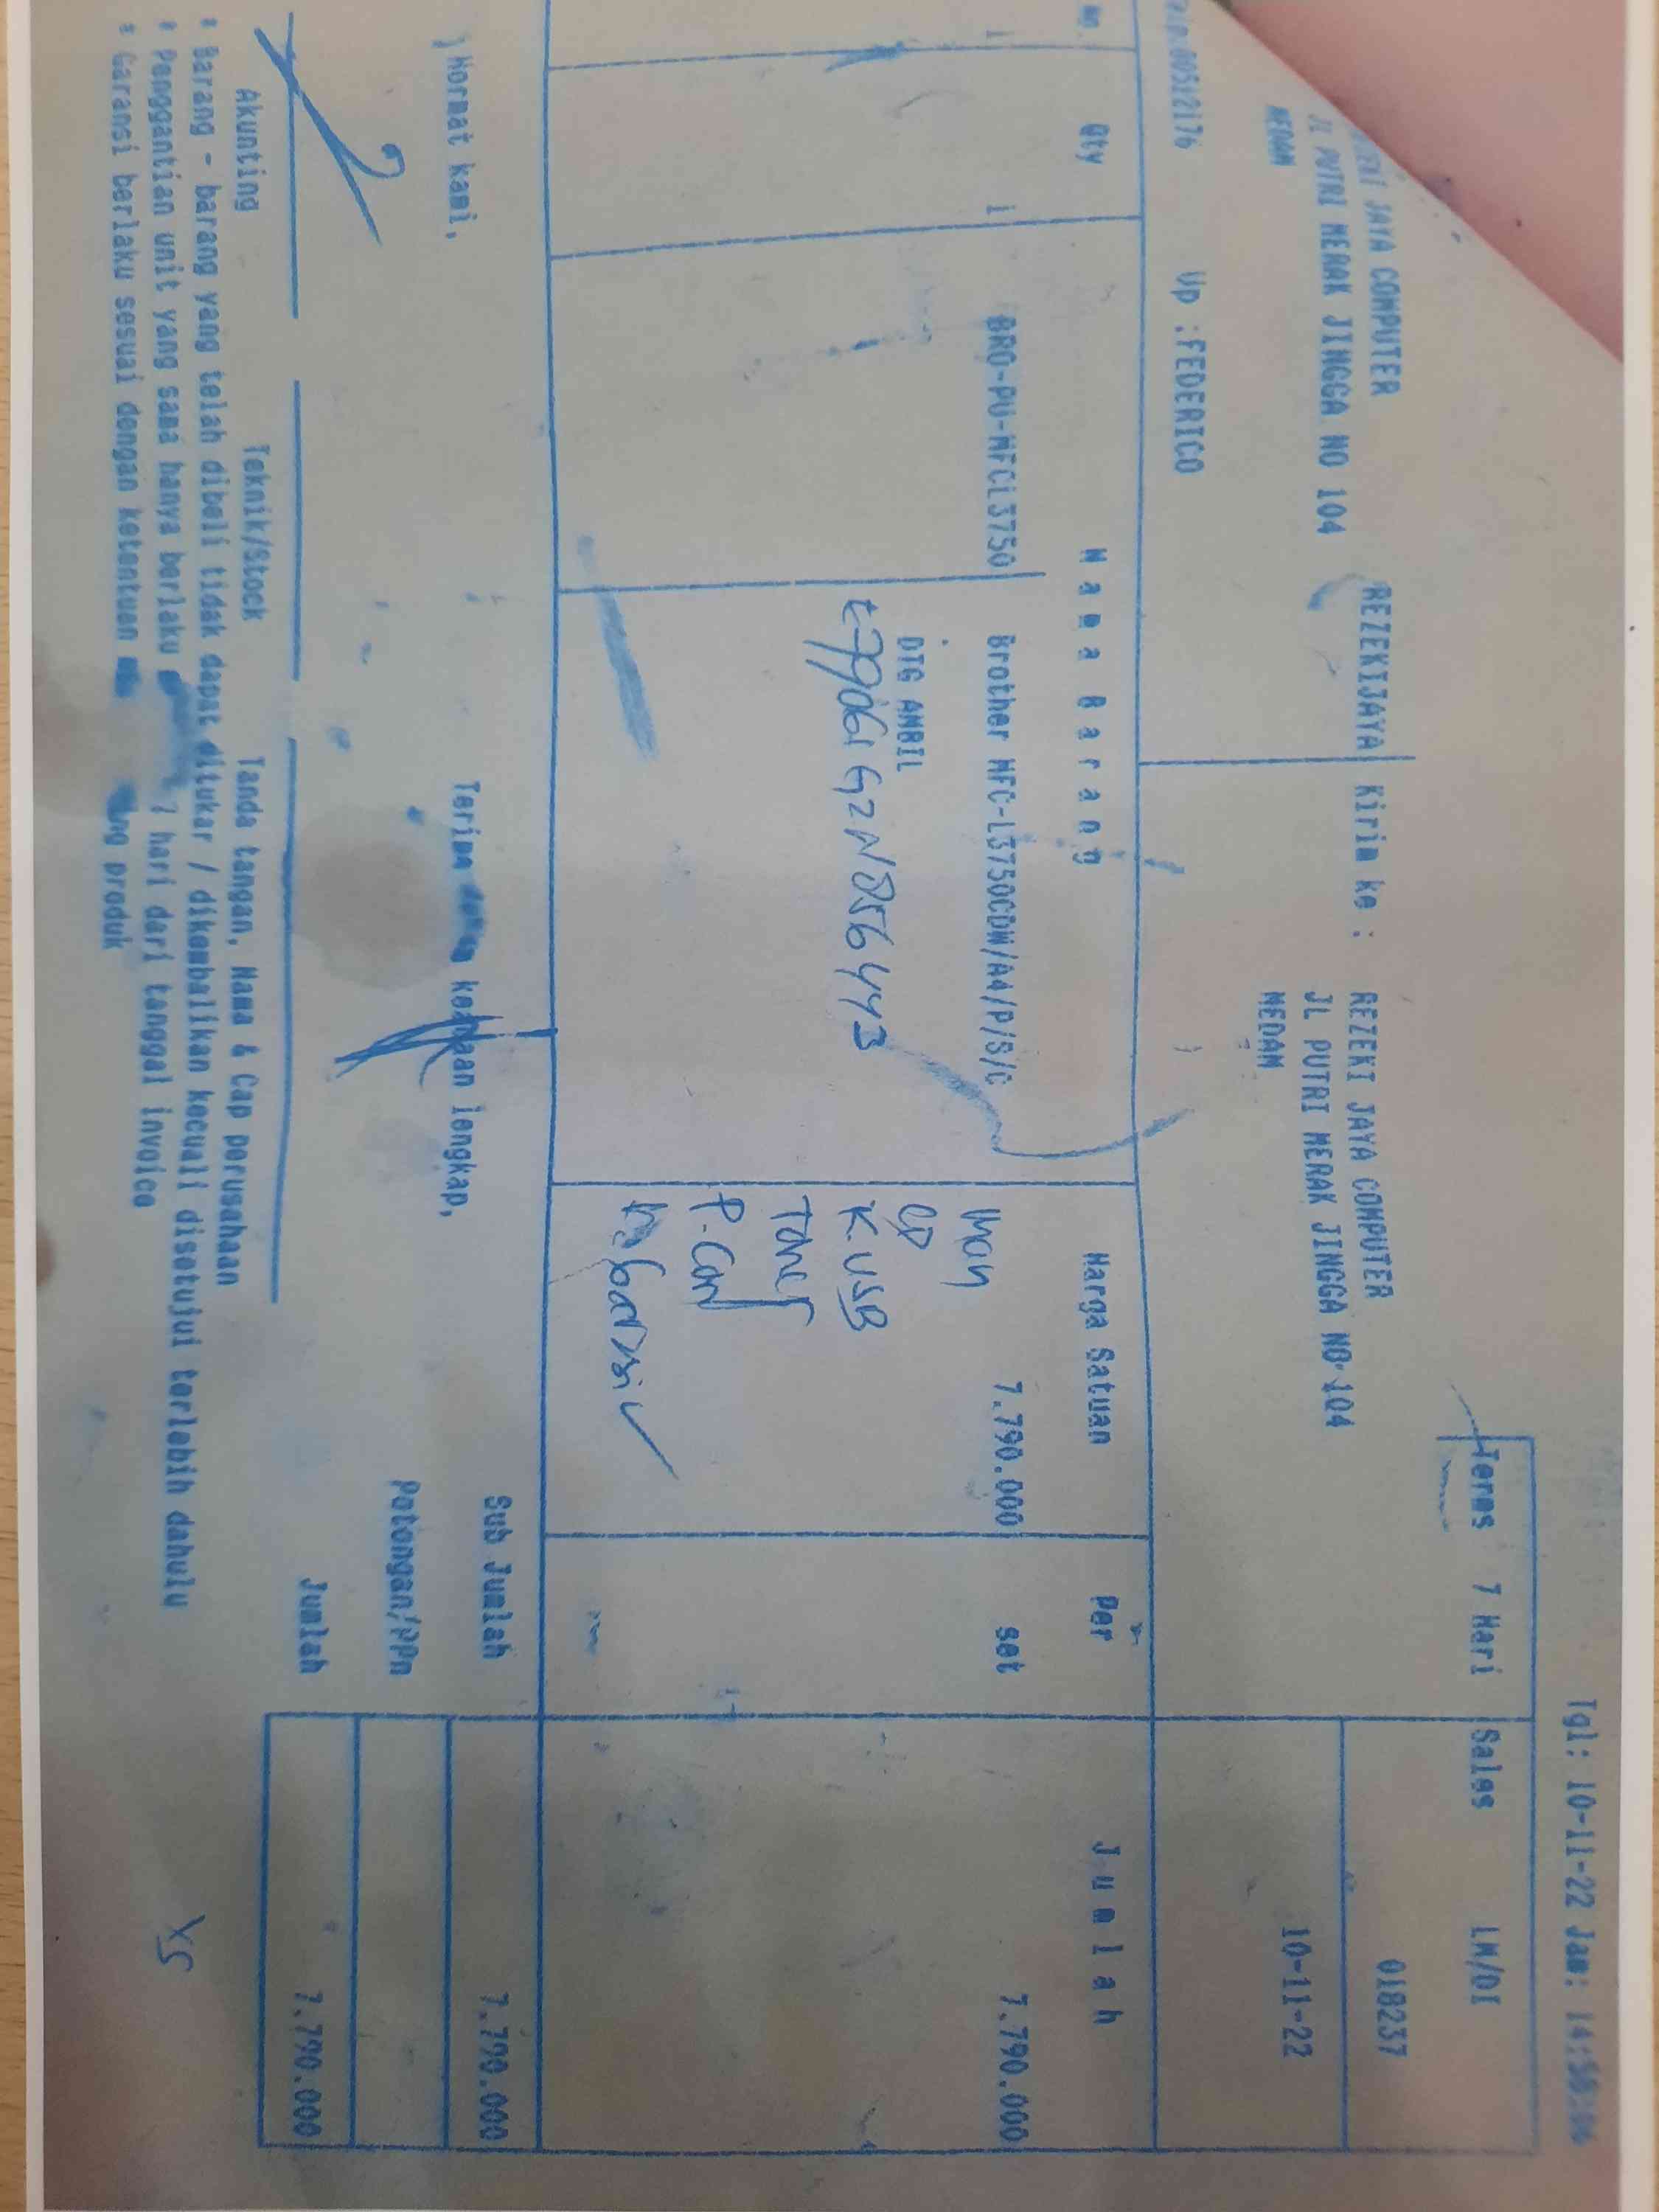 Tgl: 10-11-22 Jam:
Terms 7 Hari Sales LM/DI
JAYA COMPUTER REZEKIJAYA Kirim ke : REZEKI JAYA COMPUTER 018237
JL PUTRI MERAK JINGGA NO 104 JL PUTRI MERAK JINGGA NO 104
MEDAN MEDAN 10-11-22
Up :FEDERICO
Qty Nama Barang Harga Satuan Per Jumlah
1 1 BRO-PU-MFCL3750 Brother MFC-L3750CDW/A4/P/S/C 7.790.000 set 7.790.000
DTG AMBIL
CD
K.USB
Toner
Hormat kami, Terima keadaan lengkap, Sub Jumlah 7.790.000
Potongan/PPn
Jumlah 7.790.000
Akunting Teknik/Stock Tanda tangan, Nama & Cap perusahaan
* Barang - barang yang telah dibeli tidak dapat ditukar / dikembalikan kecuali disetujui terlebih dahulu
* Penggantian unit yang sama hanya berlaku 7 hari dari tanggal invoice
* Garansi berlaku sesuai dengan ketentuan produk